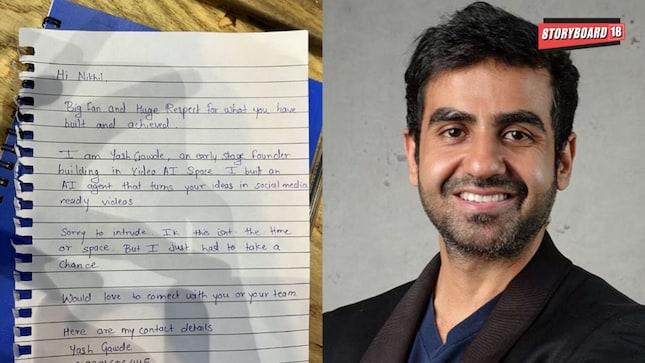 Hi Nikhil,
Big Fan and Huge Respect for what you have
built and achieved.
I am Yash Gawde, an early stage founder
building in Video AI Space I buit an
AI agent that turns your ideas in social media
ready videos
Sorry to intrude. Ik this isnt the time
or space. But I just had to take a
chance
Would love to connect with you or your team
Here are my contact details
Yash Gawde
STORYBOARD 18